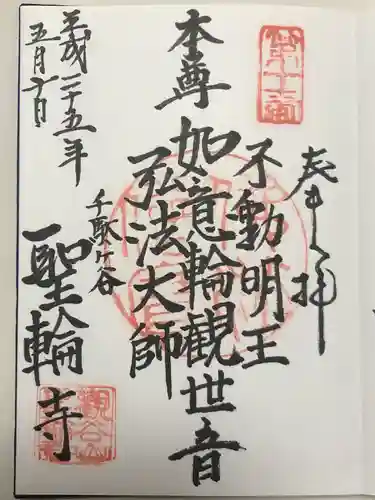 奉拝
不動明王
本尊
如意輪観世音
弘法大師
千駄ヶ谷
聖輪寺
平成二十五年
五月十日